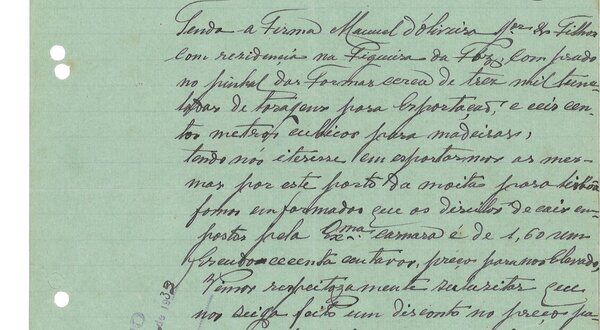 Tendo a Firma Manuel d'Oliveira & Filhos
com residencia na Figueira da Foz, comprado
no pinhal das Formas cerca de trez mil tune-
ladas de toragens para Exportação, e ceis cen-
tos metros cubicos para madeiras,
tendo nós iterisse em esportarmos as mes-
mas por este porto da moita para Lisbôa
fomos emformados que os direitos de cais em-
postos pela Exma. camara é de 1,60 um
Escudo cecenta centavos, preço para nos Elevado,
Vemos respeitozamente sulicitar que
nos seija feito um disconto no preço pa-